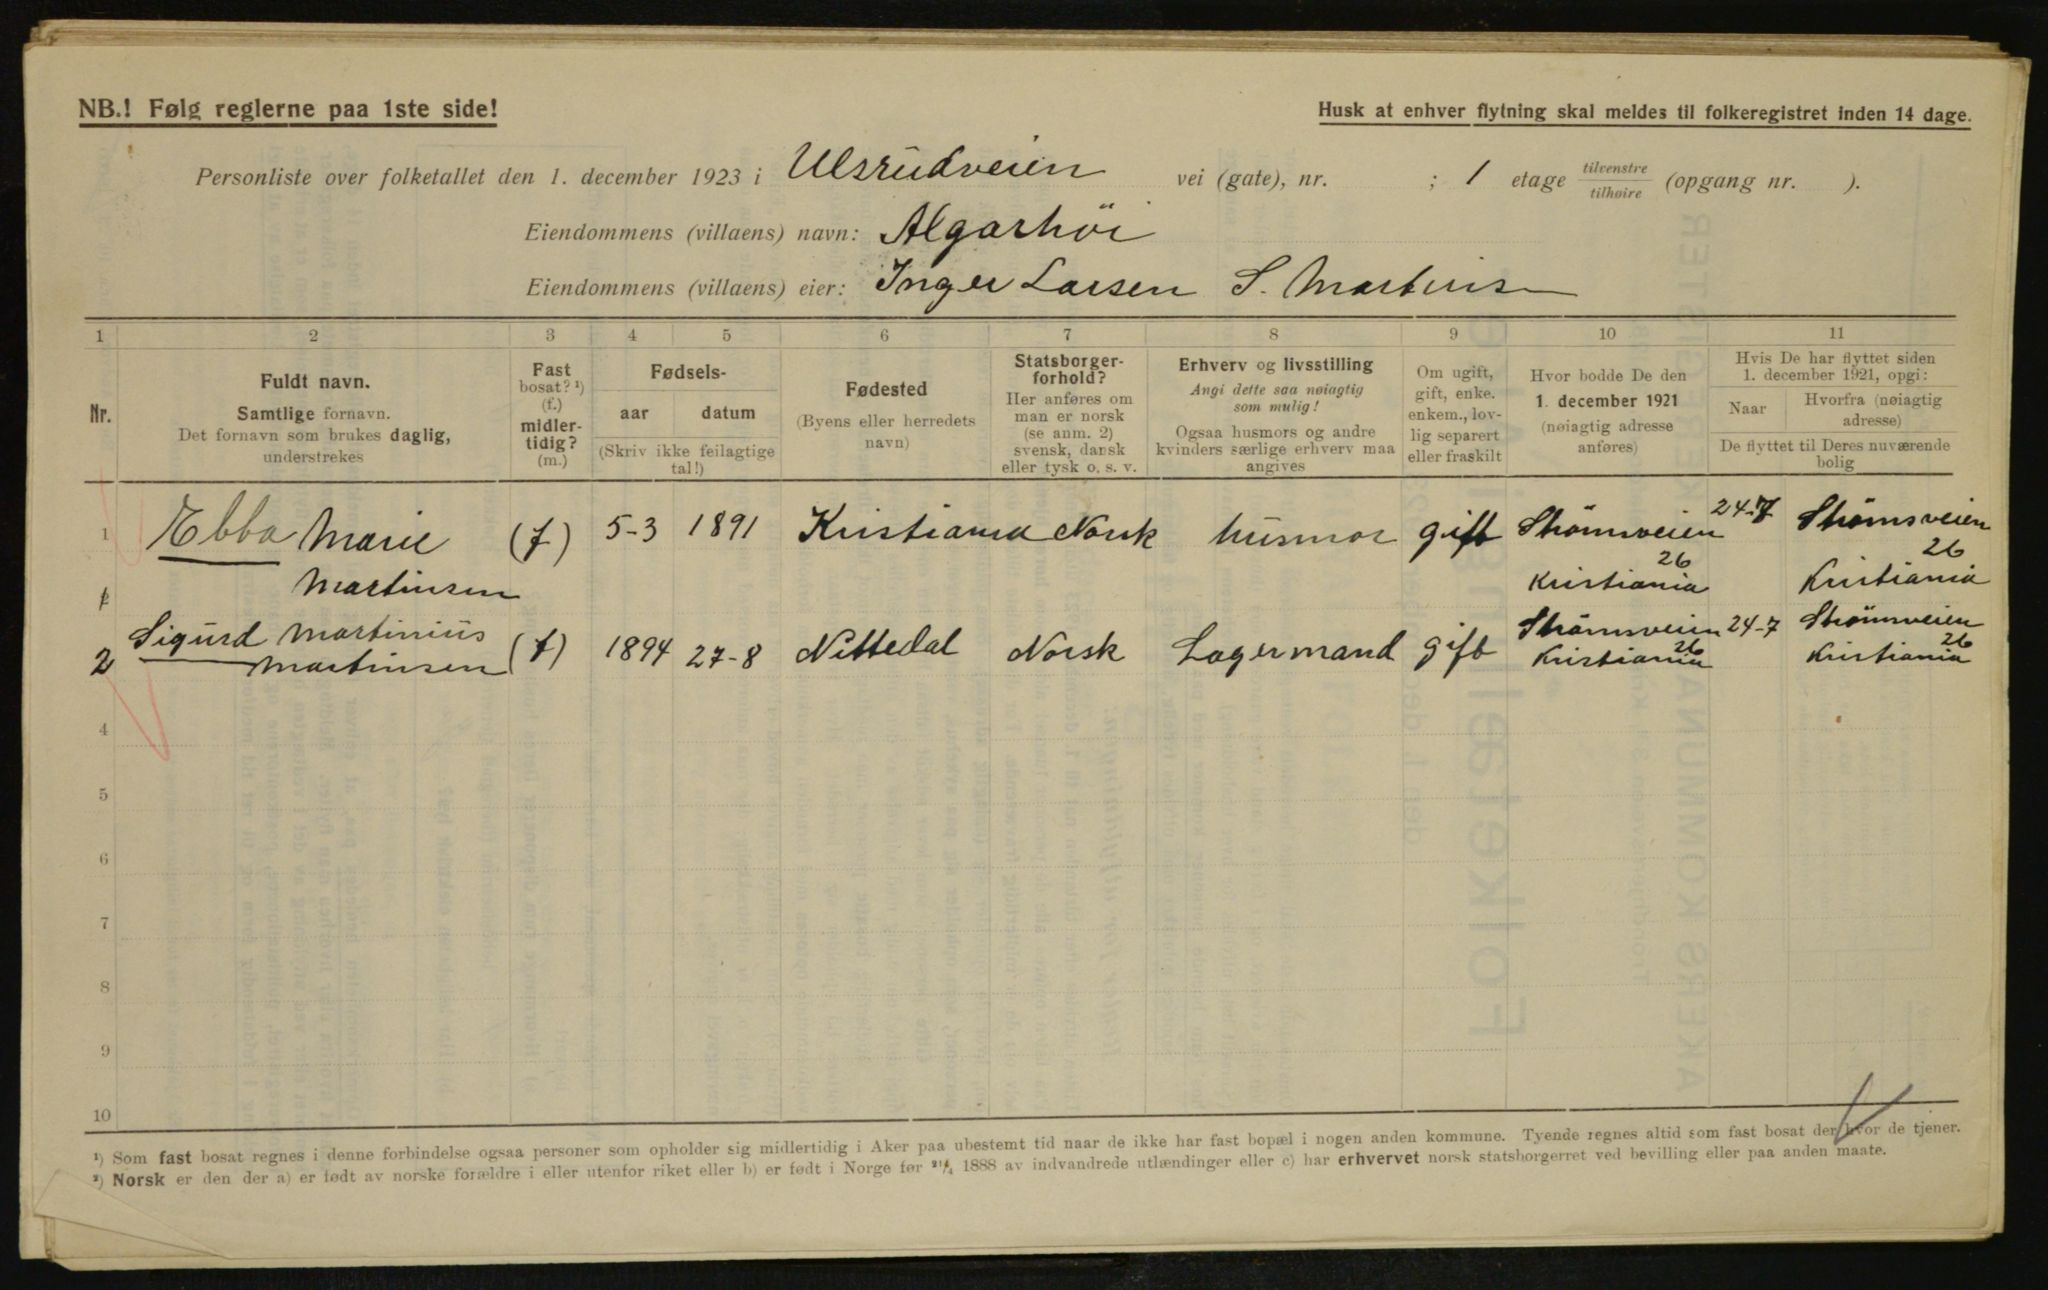 NB.! Følg reglerne paa 1ste side!
Husk at enhver flytning skal meldes til folkeregistret inden 14 dage.
Personliste over folketallet den 1. december 1923 i Ulsrudveien vei (gate), nr. ; 1 etage tilvenstre tilhøire (opgang nr. ).
Eiendommens (villaens) navn: Algarhöi
Eiendommens (villaens) eier: Inger Larsen S. Martins
1 2 3 4 5 6 7 8 9 10 11
Nr.
Fuldt navn.
Samtlige fornavn.
Det fornavn som brukes daglig,
understrekes
Fast
bosat? ¹)
(f.)
midler-
tidig?
(m.)
Fødsels-
aar datum
(Skriv ikke feilagtige
tal!)
Fødested
(Byens eller herredets
navn)
Statsborger-
forhold?
Her anføres om
man er norsk
(se anm. 2)
svensk, dansk
eller tysk o. s. v.
Erhverv og livsstilling
Angi dette saa nøiagtig
som mulig!
Ogsaa husmors og andre
kvinders særlige erhverv maa
angives
Om ugift,
gift, enke.
enkem., lov-
lig separert
eller fraskilt
Hvor bodde De den
1. december 1921
(nøiagtig adresse
anføres)
Hvis De har flyttet siden
1. december 1921, opgi:
Naar
Hvorfra (nøiagtig
adresse)
De flyttet til Deres nuværende
bolig
1 Ebba Marie (f) 5-3 1891 Kristiania Norsk husmor gift Strömsveien 24-7 Strömsveien
26 26
Martinsen Kristiania Kristiania
2 Sigurd Martinius (f) 1894 27-8 Nittedal Norsk Lagermand gift Strömsveien 24-7 Strömsveien
26 26
Martinsen Kristiania Kristiania
4
5
6
7
8
9
10
¹) Som fast bosat regnes i denne forbindelse ogsaa personer som opholder sig midlertidig i Aker paa ubestemt tid naar de ikke har fast bopæl i nogen anden kommune. Tyende regnes altid som fast bosat der hvor de tjener.
²) Norsk er den der a) er født av norske forældre i eller utenfor riket eller b) er født i Norge før 1888 av indvandrede utlændinger eller c) har erhvervet norsk statsborgerret ved bevilling eller paa anden maate.